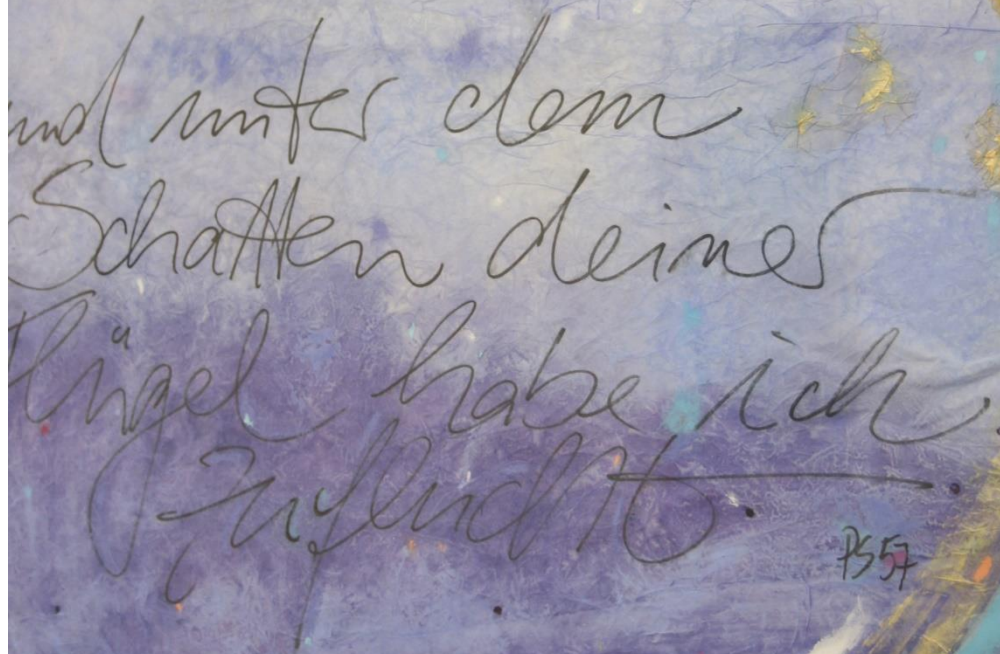 und unter dem
Schatten deiner
Flügel habe ich
Zuflucht.
PS 57